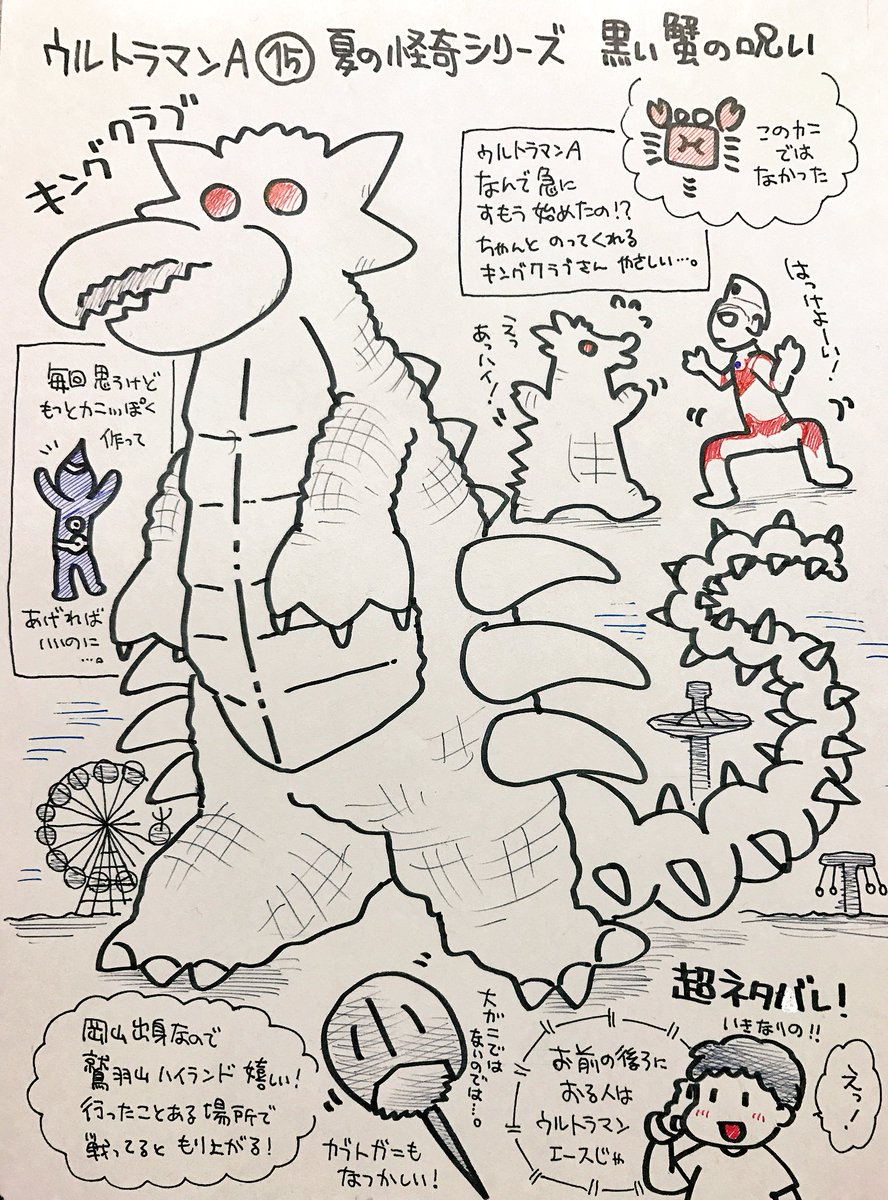 ウルトラマンA ⑮ 夏の怪奇シリーズ 黒い蟹の呪い
キングクラブ
このカニ
では
なかった
ウルトラマンA
なんで急に
すもう始めたの!?
ちゃんと のってくれる
キングクラブさん やさしい…。
はっけよーい!
えっ
あっハイ!
毎回思うけど
もっとカニっぽく
作って
あげれば
いいのに
…。
岡山出身なので
鷲羽山ハイランド嬉しい!
行ったことある場所で
戦ってると もり上がる!
大がにでは
ないのでは…。
カブトガニも
なつかしい!
超ネタバレ!
いきなりの!!
お前の後ろに
おる人は
ウルトラマン
エースじゃ
えっ!